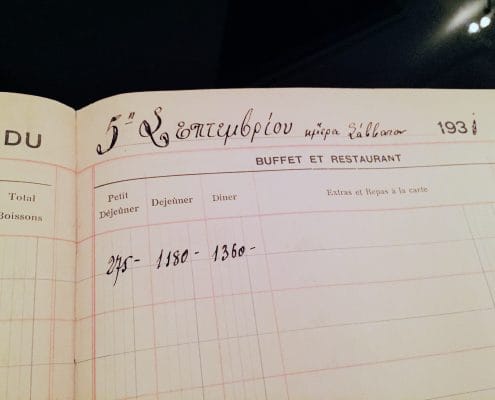 DU
5η Σεπτεμβρίου ημέρα Σάββατον 1931
BUFFET ET RESTAURANT
Total
Boissons
Petit
Déjeûner
Dejeûner
Dîner
Extras et Repas à la carte
275- 1180- 1360-